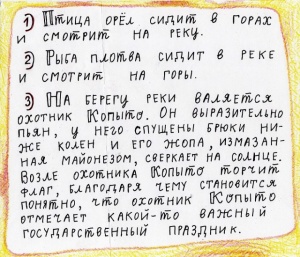 1) Птица орёл сидит в горах
и смотрит на реку.
2) Рыба плотва сидит в реке
и смотрит на горы.
3) На берегу реки валяется
охотник Копыто. Он выразительно
пьян, у него спущены брюки ни-
же колен и его жопа, измазан-
ная майонезом, сверкает на солнце.
Возле охотника Копыто торчит
флаг, благодаря чему становится
понятно, что охотник Копыто
отмечает какой-то важный
государственный праздник.